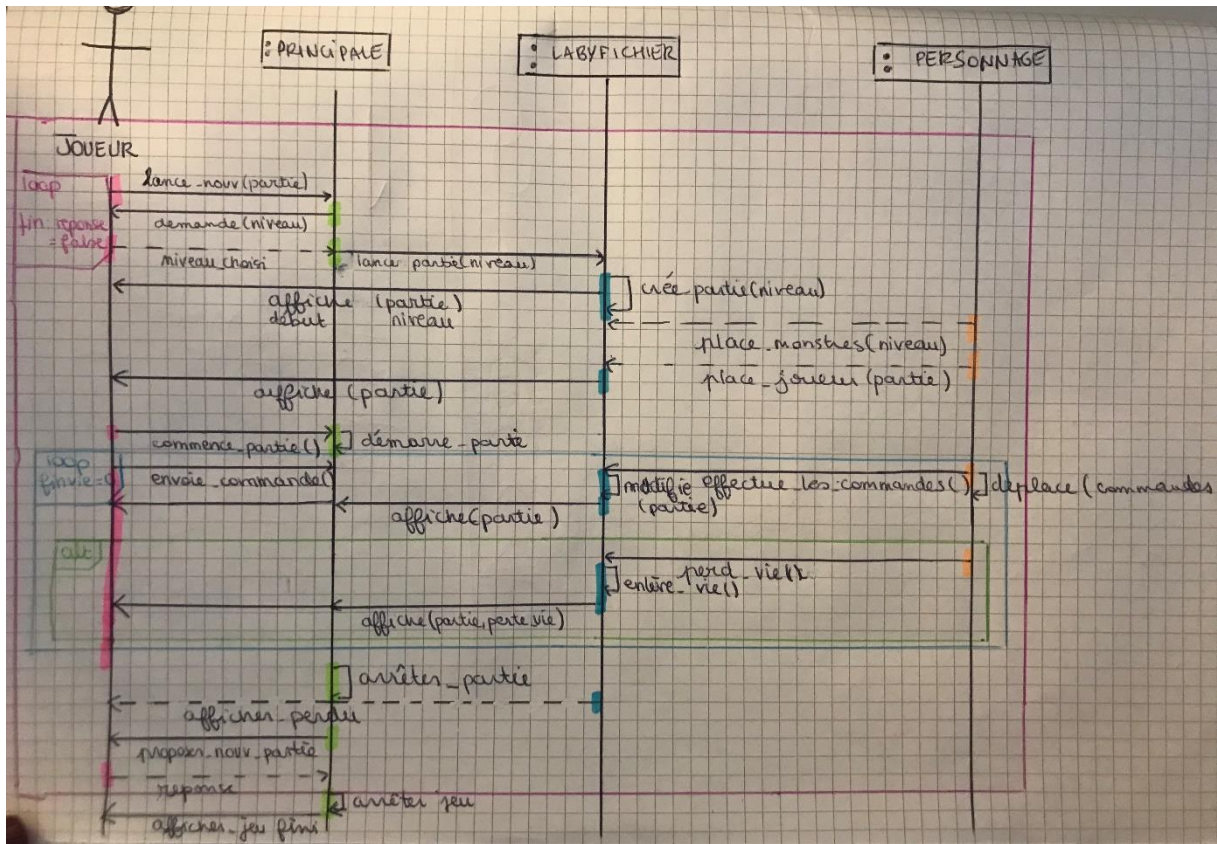 : PRINCIPALE
: LABYFICHIER
: PERSONNAGE
JOUEUR
loop
fin reponse
= false
lance_nouv(partie)
demande(niveau)
niveau_choisi
lance partie(niveau)
crée partie(niveau)
affiche (partie)
début niveau
place_monstres(niveau)
place_joueur(partie)
affiche (partie)
commence_partie()
démarre_partie
loop
finvie=0
envoie_commande()
modifie effectue_les_commandes()
(partie)
deplace(commandes
affiche(partie)
alt
perd_vie()
enlève_vie()
affiche(partie,perte_vie)
arrêter_partie
afficher_perdu
proposer_nouv_partie
reponse
arrêter jeu
afficher_jeu fini